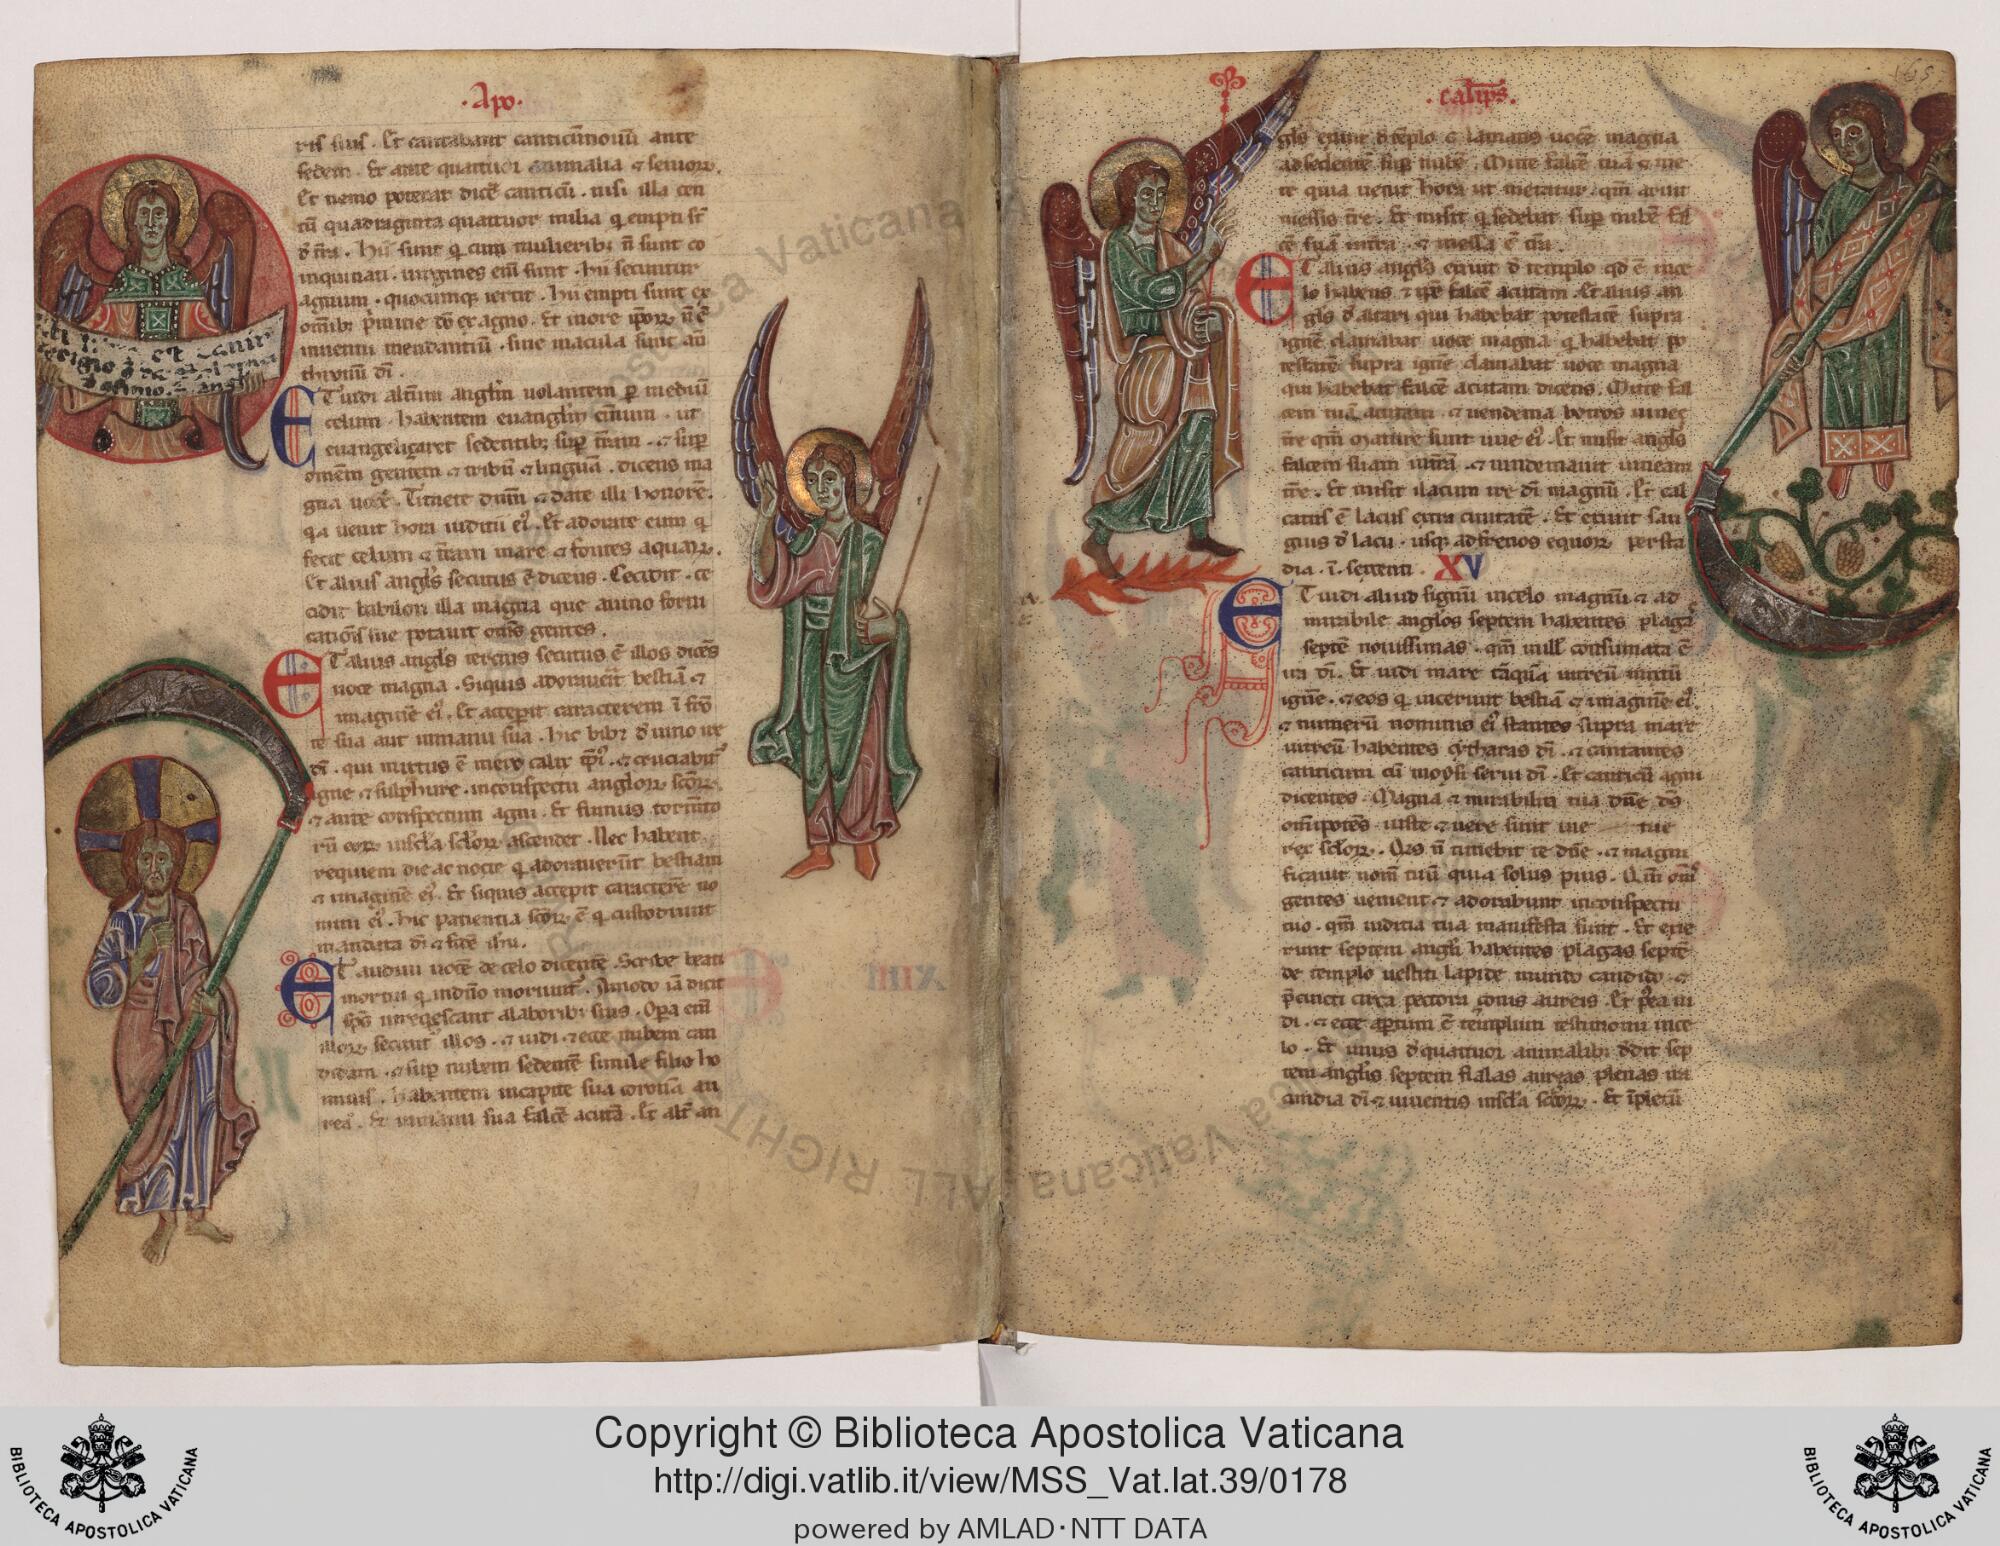 ·Apo·
ris suis . Et cantabant canticūnouū ante
sedem . Et ante quattuor animalia ⁊ senioꝝ.
Et nemo poterat dicē canticū . nisi illa cen
tū quadraginta quattuor milia q empti st̄
d̄ tr̄a . Hii sunt q cum mulierib; n̄ sunt co
inquinati . uirgines eni sunt . hii secuntur
agnum . quocumq; ierit . hii empti sunt ex
omīb; p̄mitie dō ⁊ agno . Et in ore ip̄oꝝ n̄ ē
inuentū mendatiū . sine macula sunt an̄
thronū dī .
ET uidi altm̄ angl̄m uolantem p mediū
celum . habentem euangliū et̄num . ut
euangelizaret sedentib; sup̄ tr̄am . ⁊ sup̄
om̄em gentem ⁊ tribū ⁊ linguā . dicens ma
gna uoce . Timete dn̄m ⁊ date illi honorē.
q̄a uenit hora iuditii ei' . Et adorate eum q
fecit celum ⁊ tr̄am mare ⁊ fontes aquaꝝ .
Et alius angl̄s secutus ē dicens . Cecidit . ce
cidit babilon illa magna que a uino forni
cationis sue potauit om̄s gentes .
ET alius angl̄s tercius secutus ē illos dicēs
uoce magna . Siquis adorauerit bestiā ⁊
imaginē ei' . Et acceperit caracterem ī frō
te sua aut inmanu sua . hic bibꝫ d̄ uino ire
dī . qui mixtus ē mero calix ip̄i' . ⁊ cruciabit'
igne ⁊ sulphure . inconspectu angl̄oꝝ scōꝝ
⁊ ante conspectum agni . Et fumus tormto
rū eoꝝ inscl̄a scl̄oꝝ ascendet . Nec habent
requiem die ac nocte q adorauerūt bestiam
⁊ imaginē ei' . Et siquis accepit caracterē no
mini ei' . hic patientia scōꝝ ē q custodiunt
mandata dī ⁊ fidē ih̄u .
ET audiui uocē de celo dicentē . Scribe beati
mortui q indn̄o moriunt' . Amodo iā dicit
sp̄s ut reqescant alaborib; suis . Opa eni
illoꝝ secunt' illos . ⁊ uidi . ⁊ ecce nubem can
didam . ⁊ sup̄ nubem sedentē simile filio ho
minis . habentem incapite sua coronā au
reā . Et inmanu sua falcē acutā . Et alt' an
·calips̄·
165
gl̄s exiuit d̄ tēplo ⁊ clamans uoce magna
ad sedentē sup̄ nubē . Mitte falcē tuā ⁊ me
te quia uenit hora ut metatur . qm̄ aruit
messis tr̄e . Et misit q sedebat sup̄ nubē fal
cē suā intrā . ⁊ messa ē tr̄a .
ET alius angl̄s exiuit d̄ templo qd̄ ē ince
lo habens ⁊ ip̄e falcē acutam . Et alius an
gl̄s d̄ altari qui habebat potestatē supra
ignē clamabat uoce magna q habebat po
testatē supra ignē clamabat uoce magna
qui habebat falcē acutam dicens . Mitte fal
cem tuā acutam . ⁊ uendemia botros uinee
tr̄e qm̄ mature sunt uue ei' . Et misit angl̄s
falcem suam intrā . ⁊ uindemauit uineam
tr̄e . Et misit ilacum ire dī magnū . Et cal
catus ē lacus extra ciuitatē . Et exiuit san
guis d̄ lacu . usq; ad frenos equoꝝ per sta
dia . ī . sexcenti . XV
ET uidi aliud signū incelo magnū ⁊ ad
mirabile angl̄os septem habentes plagas
septē nouissimas . qm̄ inill' consumata ē
ira dī . Et uidi mare tāqua uitreū mixtū
ignē . ⁊ eos q uicerunt bestiā ⁊ imaginē ei'
⁊ numerū nominis ei' stantes supra mare
uitreū habentes cytharas dī . ⁊ cantantes
canticum cū moysi serui dī . Et canticū agni
dicentes . Magna ⁊ mirabilia tua dn̄e ds̄
om̄potēs . iuste ⁊ uere sunt uie tue
rex scl̄oꝝ . Qis n̄ timebit te dn̄e . ⁊ magni
ficauit nom̄ tuū quia solus pius . Qm̄ om̄s
gentes uenient ⁊ adorabunt inconspectu
tuo . qm̄ iuditia tua manifesta sunt . Et exie
runt septem angl̄i habentes plagas septē
de templo uestiti lapide mundo candido ⁊
p̄cincti circa pectora zonis aureis . Et p̄ea ui
di . ⁊ ecce apertum ē templum testimonii ince
lo . Et unus d̄ quattuor animalib; dedit sep
tem angl̄is septem fialas aureas plenas ira
cundia dī ⁊ uiuentis inscl̄a scl̄oꝝ . Et īpletū
Copyright © Biblioteca Apostolica Vaticana
http://digi.vatlib.it/view/MSS_Vat.lat.39/0178
powered by AMLAD·NTT DATA
BIBLIOTECA APOSTOLICA VATICANA
BIBLIOTECA APOSTOLICA VATICANA